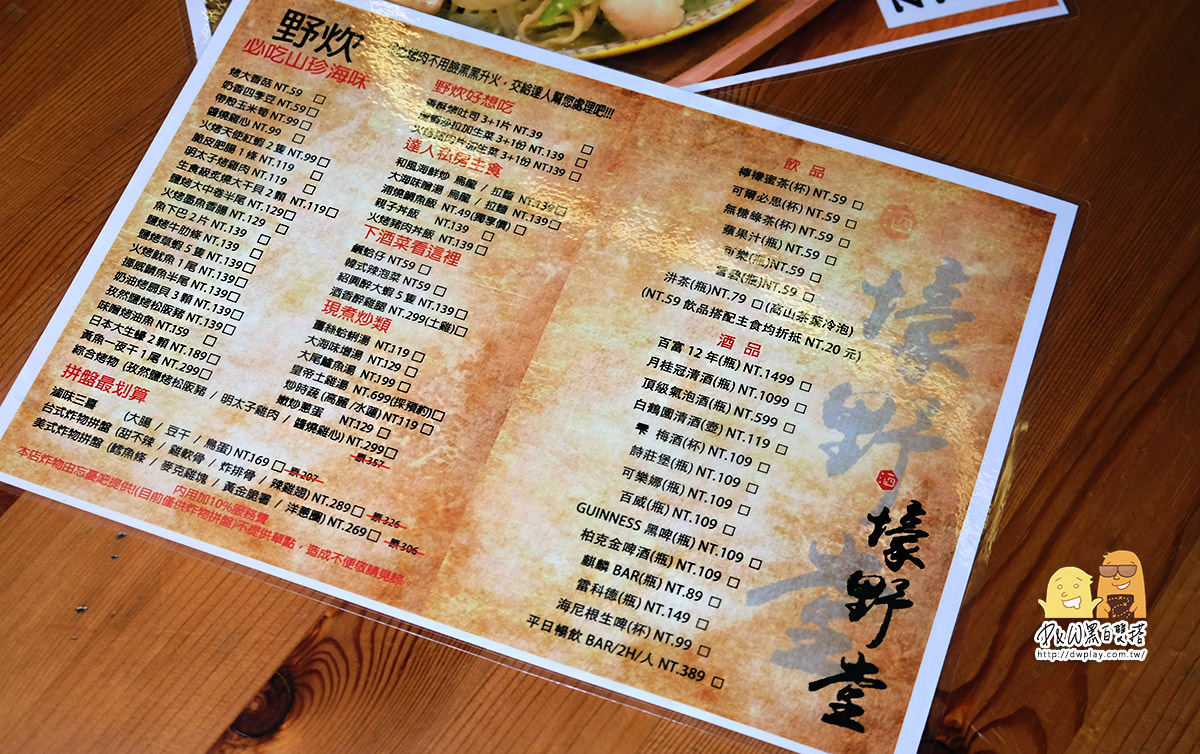 野炊
吃烤肉不用臉黑黑升火，交給達人幫您處理吧!!!
必吃山珍海味
烤大香菇 NT.59 □
奶香四季豆 NT.59 □
帶殼玉米筍 NT.99 □
醬燒雞心 NT.99 □
火烤天使紅蝦 2 隻 NT.99 □
脆皮肥腸 1 條 NT.119 □
明太子烤雞肉 NT.119 □
生食級炙燒大干貝 2 顆 NT.119 □
鹽烤大中卷半尾 NT.129 □
火烤墨魚香腸 NT.129 □
魚下巴 2 片 NT.139 □
鹽烤牛肋條 NT.139 □
鹽烤草蝦 5 隻 NT.139 □
火烤魷魚 1 尾 NT.139 □
挪威鯖魚半尾 NT.139 □
奶油烤扇貝 3 顆 NT.139 □
孜然鹽烤松阪豬 NT.139 □
味噌烤油魚 NT.159 □
日本大生蠔 2 顆 NT.189 □
黃魚一夜干 1 尾 NT.299 □
綜合烤物 (孜然鹽烤松阪豬 / 明太子雞肉 / 醬燒雞心) NT.299 □
原357
拼盤最划算
滷味三喜 (大腸 / 豆干 / 鳥蛋) NT.169 □ 原207
台式炸物拼盤 (甜不辣 / 雞軟骨 / 炸排骨 / 辣雞翅) NT.289 □ 原326
美式炸物拼盤 (鱈魚條 / 麥克雞塊 / 黃金脆薯 / 洋蔥圈) NT.269 □ 原306
內用加10%服務費
本店炸物由忘憂吧提供!(目前僅供炸物拼盤)不提供單點，造成不便敬請見諒
野炊好想吃
香酥烤吐司 3+1片 NT.39 □
龍蝦沙拉加生菜 3+1份 NT.139 □
火烤豬肉片加生菜 3+1份 NT.139 □
達人私房主食
和風海鮮炒 烏龍 / 拉麵 NT.139 □
大海味噌湯 烏龍 / 拉麵 NT.139 □
蒲燒鯛魚飯 NT.49 (獨享價) □
親子丼飯 NT.139 □
火烤豬肉丼飯 NT.139 □
下酒菜看這裡
鹹蛤仔 NT59 □
韓式辣泡菜 NT59 □
紹興醉大蝦 5 隻 NT.139 □
酒香醉雞腿 NT.299(土雞) □
現煮炒類
薑絲蛤蜊湯 NT.119 □
大海味噌湯 NT.129 □
大尾鱸魚湯 NT.199 □
皇帝土雞湯 NT.699(採預約) □
炒時蔬 (高麗 /水蓮) NT.119 □
嫩炒蔥蛋 NT.129 □
飲 品
檸檬蜜茶(杯) NT.59 □
可爾必思(杯) NT.59 □
無糖綠茶(杯) NT.59 □
蘋果汁(瓶) NT.59 □
可樂(瓶)NT.59 □
雪碧(瓶)NT.59 □
汫茶(瓶)NT.79 □ (高山茶葉冷泡)
(NT.59 飲品搭配主食均折抵 NT.20 元)
酒 品
百富 12 年(瓶) NT.1499 □
月桂冠清酒(瓶) NT.1099 □
頂級氣泡酒(瓶) NT.599 □
白鶴園清酒(壺) NT.119 □
雫 梅酒(杯) NT.109 □
詩莊堡(瓶) NT.109 □
可樂娜(瓶) NT.109 □
百威(瓶) NT.109 □
GUINNESS 黑啤(瓶) NT.109 □
柏克金啤酒(瓶) NT.109 □
麒麟 BAR(瓶) NT.89 □
雷科德(瓶) NT.149 □
海尼根生啤(杯) NT.99 □
平日暢飲 BAR/2H/人 NT.389 □
壕野堂
酒
壕野堂
D&W黑白雙搭
http://dwplay.com.tw/